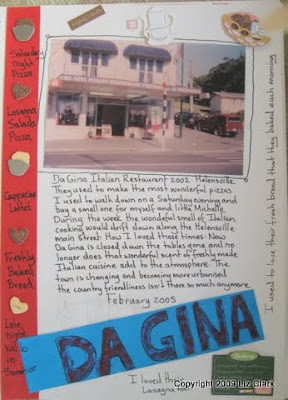 Saturday
night
Pizza
Lasagna
Salads
Pizza
Cappucino
Lattes
Freshly
Baked
Bread
Late
night
Walks
in
Summer
Da Gina Italian Restaurant 2002 Helensville
They used to make the most wonderful pizzas
I used to walk down on a Saturday evening and
buy a small one for myself and little Michelle.
During the week the wonderful smell of Italian
cooking would drift down along the Helensville
main street. How I loved those times. Now
Da Gina is closed down the tables gone and no
longer does that wonderful scent of freshly made
Italian cuisine add to the atmosphere. The
town is changing and becoming more urbanised
the country friendliness isn't there so much anymore
February 2005
I used to love their fresh bread that they baked each morning
DA GINA
I loved the
Lasagna too
Copyright 2009 Liz Clark